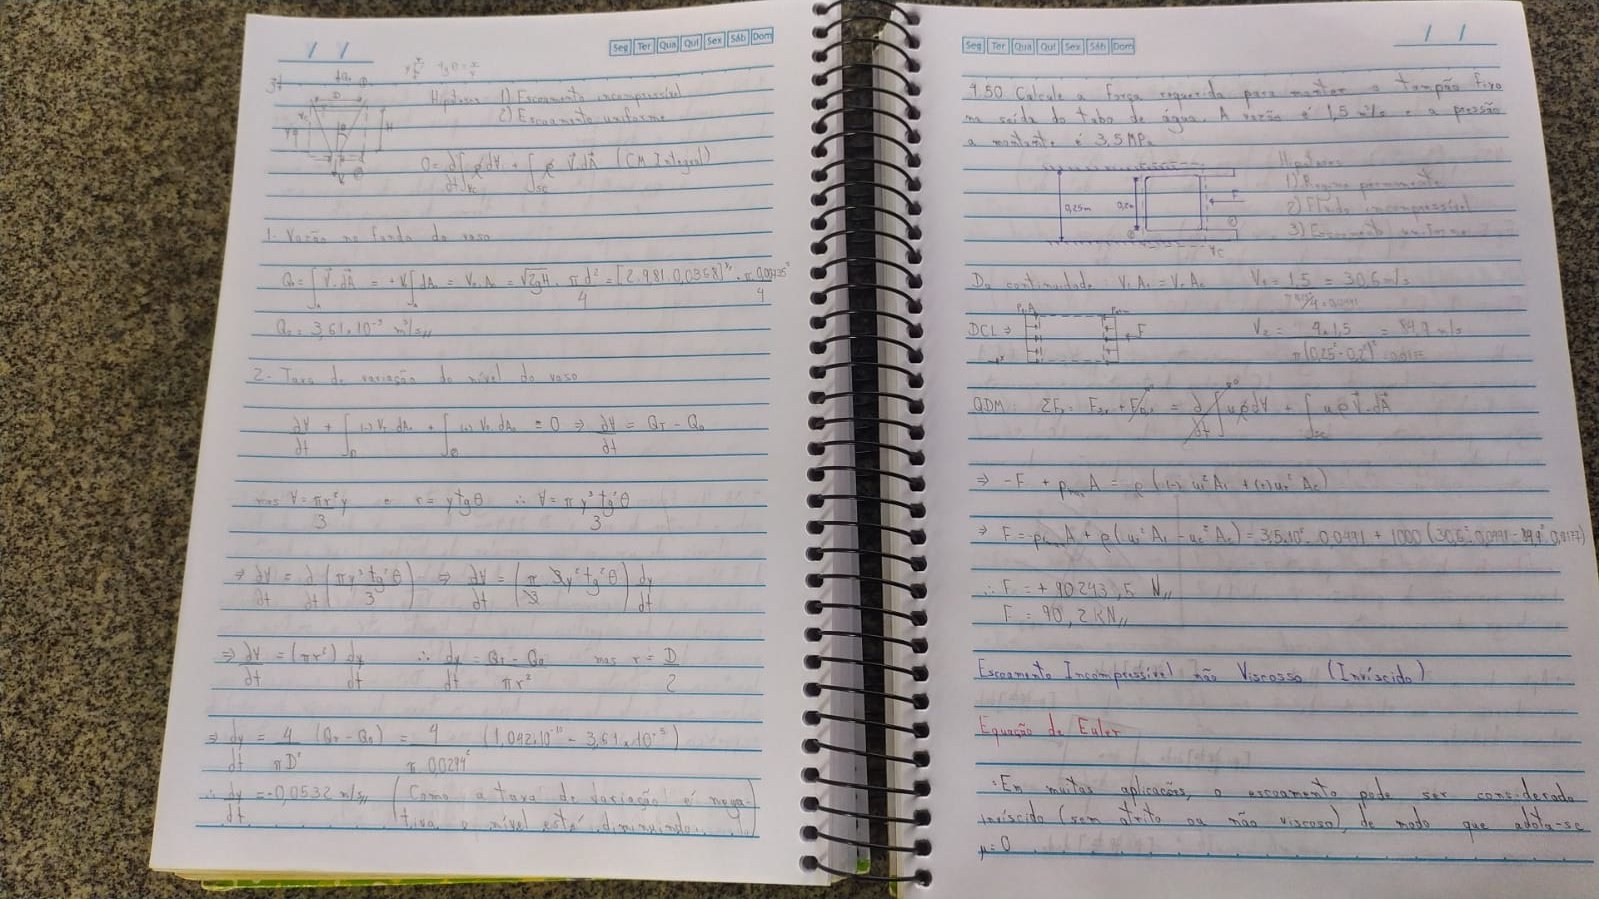 / /
Seg Ter Qua Qui Sex Sáb Dom
tgθ = x/y
Hipóteses 1) Escoamento incompressível
2) Escoamento uniforme
D
H
0 = ∂/∂t ∫vc ρ dV + ∫sc ρ V⃗.dA⃗ (CM Integral)
1- Vazão no fundo do vaso
Q₀ = ∫ V⃗.dA⃗ = +V₀∫ dA₀ = V₀.A₀ = √2gH . πd²/4 = [2.9,81.0,0368]^½ . π 0,00735²/4
Q₀ = 3,61×10⁻⁵ m³/s,,
2- Taxa de variação do nível do vaso
∂V/∂t + ∫ (-) V dA + ∫ (+) V₀ dA₀ = 0 ⇒ ∂V/∂t = QT - Q₀
mas V = πr²y/3 e r = y tgθ ∴ V = π y³ tg²θ/3
⇒ ∂V/∂t = ∂/∂t (πy³tg²θ/3) ⇒ ∂V/∂t = (π/3 3y²tg²θ) dy/dt
⇒ ∂V/∂t = (πr²) dy/dt ∴ dy/dt = QT - Q₀/πr² mas r = D/2
⇒ dy/dt = 4/πD² (QT - Q₀) = 4/π 0,0294² (1,042×10⁻¹⁰ - 3,61×10⁻⁵)
∴ dy/dt = -0,0532 m/s,, (Como a taxa de variação é nega-
tiva o nível está diminuindo.)
/ /
Seg Ter Qua Qui Sex Sáb Dom
4.50 Calcule a força requerida para manter o tampão fixo
na saída do tubo de água. A vazão é 1,5 m³/s e a pressão
a montante é 3,5MPa
Hipóteses
1) Regime permanente
0,25m 0,2m F
2) Fluido incompressível
3) Escoamento uniforme
VC
Da continuidade: V₁A₁ = V₂A₂ V₁ = 1,5 = 30,6 m/s
DCL → F
V₂ = 4×1,5/π(0,25² - 0,2²) = 84,9 m/s
QDM: ΣFx = Fsx + FBx = ∂/∂t ∫ uρdV + ∫sc uρV⃗.dA⃗
⇒ -F + pman A = ρ (-) u₁²A₁ + (+) u₂²A₂)
⇒ F = pman A + ρ(u₁²A₁ - u₂²A₂) = 3,5.10⁶ . 0,0491 + 1000 (30,6².0,0491 - 84,9².0,0177)
∴ F = + 90243,5 N,,
F = 90,2 KN,,
Escoamento Incompressível não Viscoso (Invíscido)
Equação de Euler
·Em muitas aplicações, o escoamento pode ser considerado
invíscido (sem atrito ou não viscoso), de modo que adota-se
μ = 0